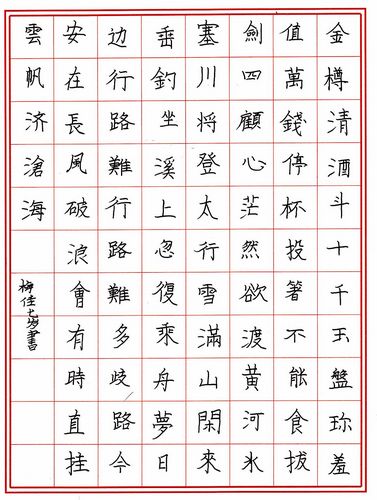 金樽清酒斗十千玉盤珍羞
值萬錢停杯投箸不能食拔
劍四顧心茫然欲渡黃河氷
塞川將登太行雪滿山閑來
垂釣坐溪上忽復乘舟夢日
边行路難行路難多歧路今
安在長風破浪會有時直挂
雲帆济滄海
梅佳七岁書